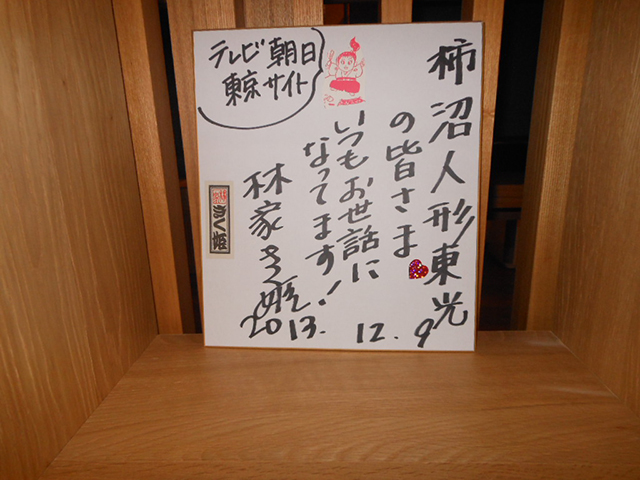 柿沼人形東光
の皆さま
いつもお世話に
なってます!
林家きく姫
2013. 12. 9
テレビ朝日
東京サイト
きく姫